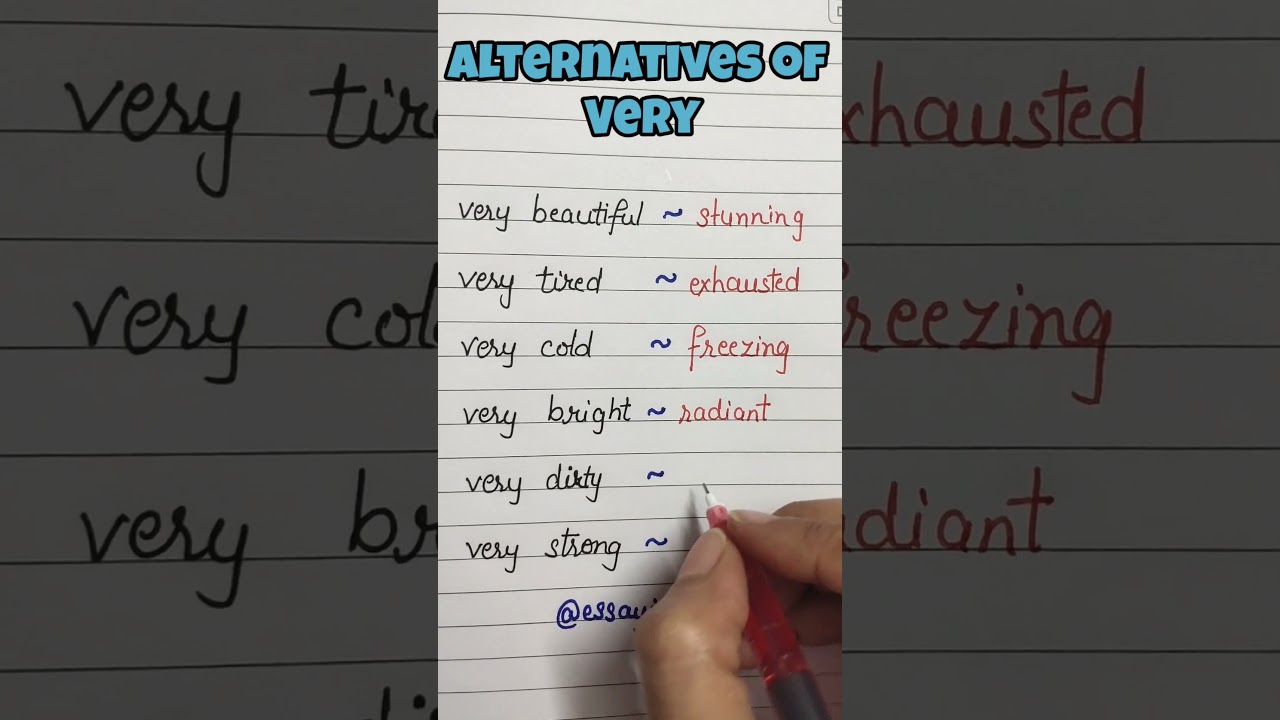 ALTERNATIVES OF
VERY
very beautiful ~ stunning
very tired ~ exhausted
very cold ~ freezing
very bright ~ radiant
very dirty ~
very strong ~